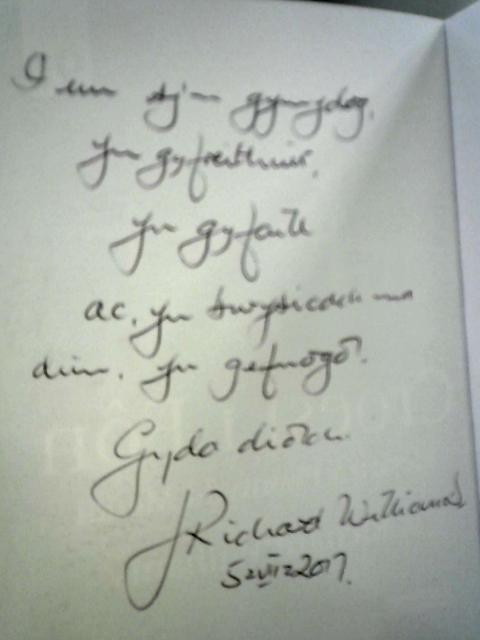 I un sy'n gymydog,
yn gyfreithiwr,
yn gyfaill
ac, yn bwysicach na
dim, yn gefnogol.
Gyda diolch.
Richard Williams
5-VII-2017.